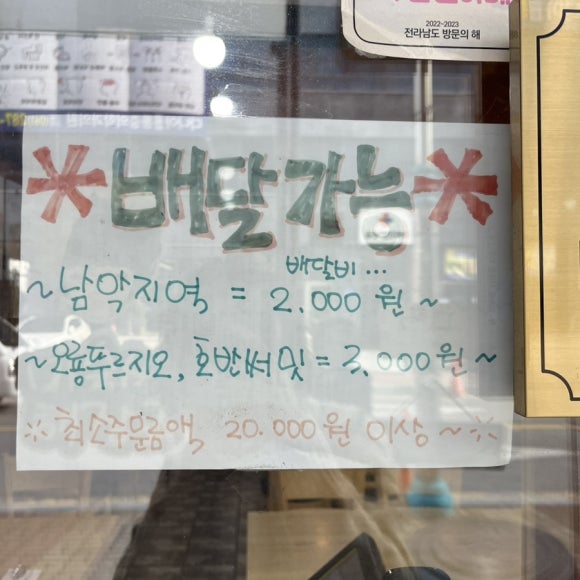 2022~2023
전라남도 방문의 해
*배달가능*
배달비...
~남악지역 = 2.000원~
~오룡푸르지오, 호반써밋 = 3.000원~
※최소주문금액 20.000원 이상~※